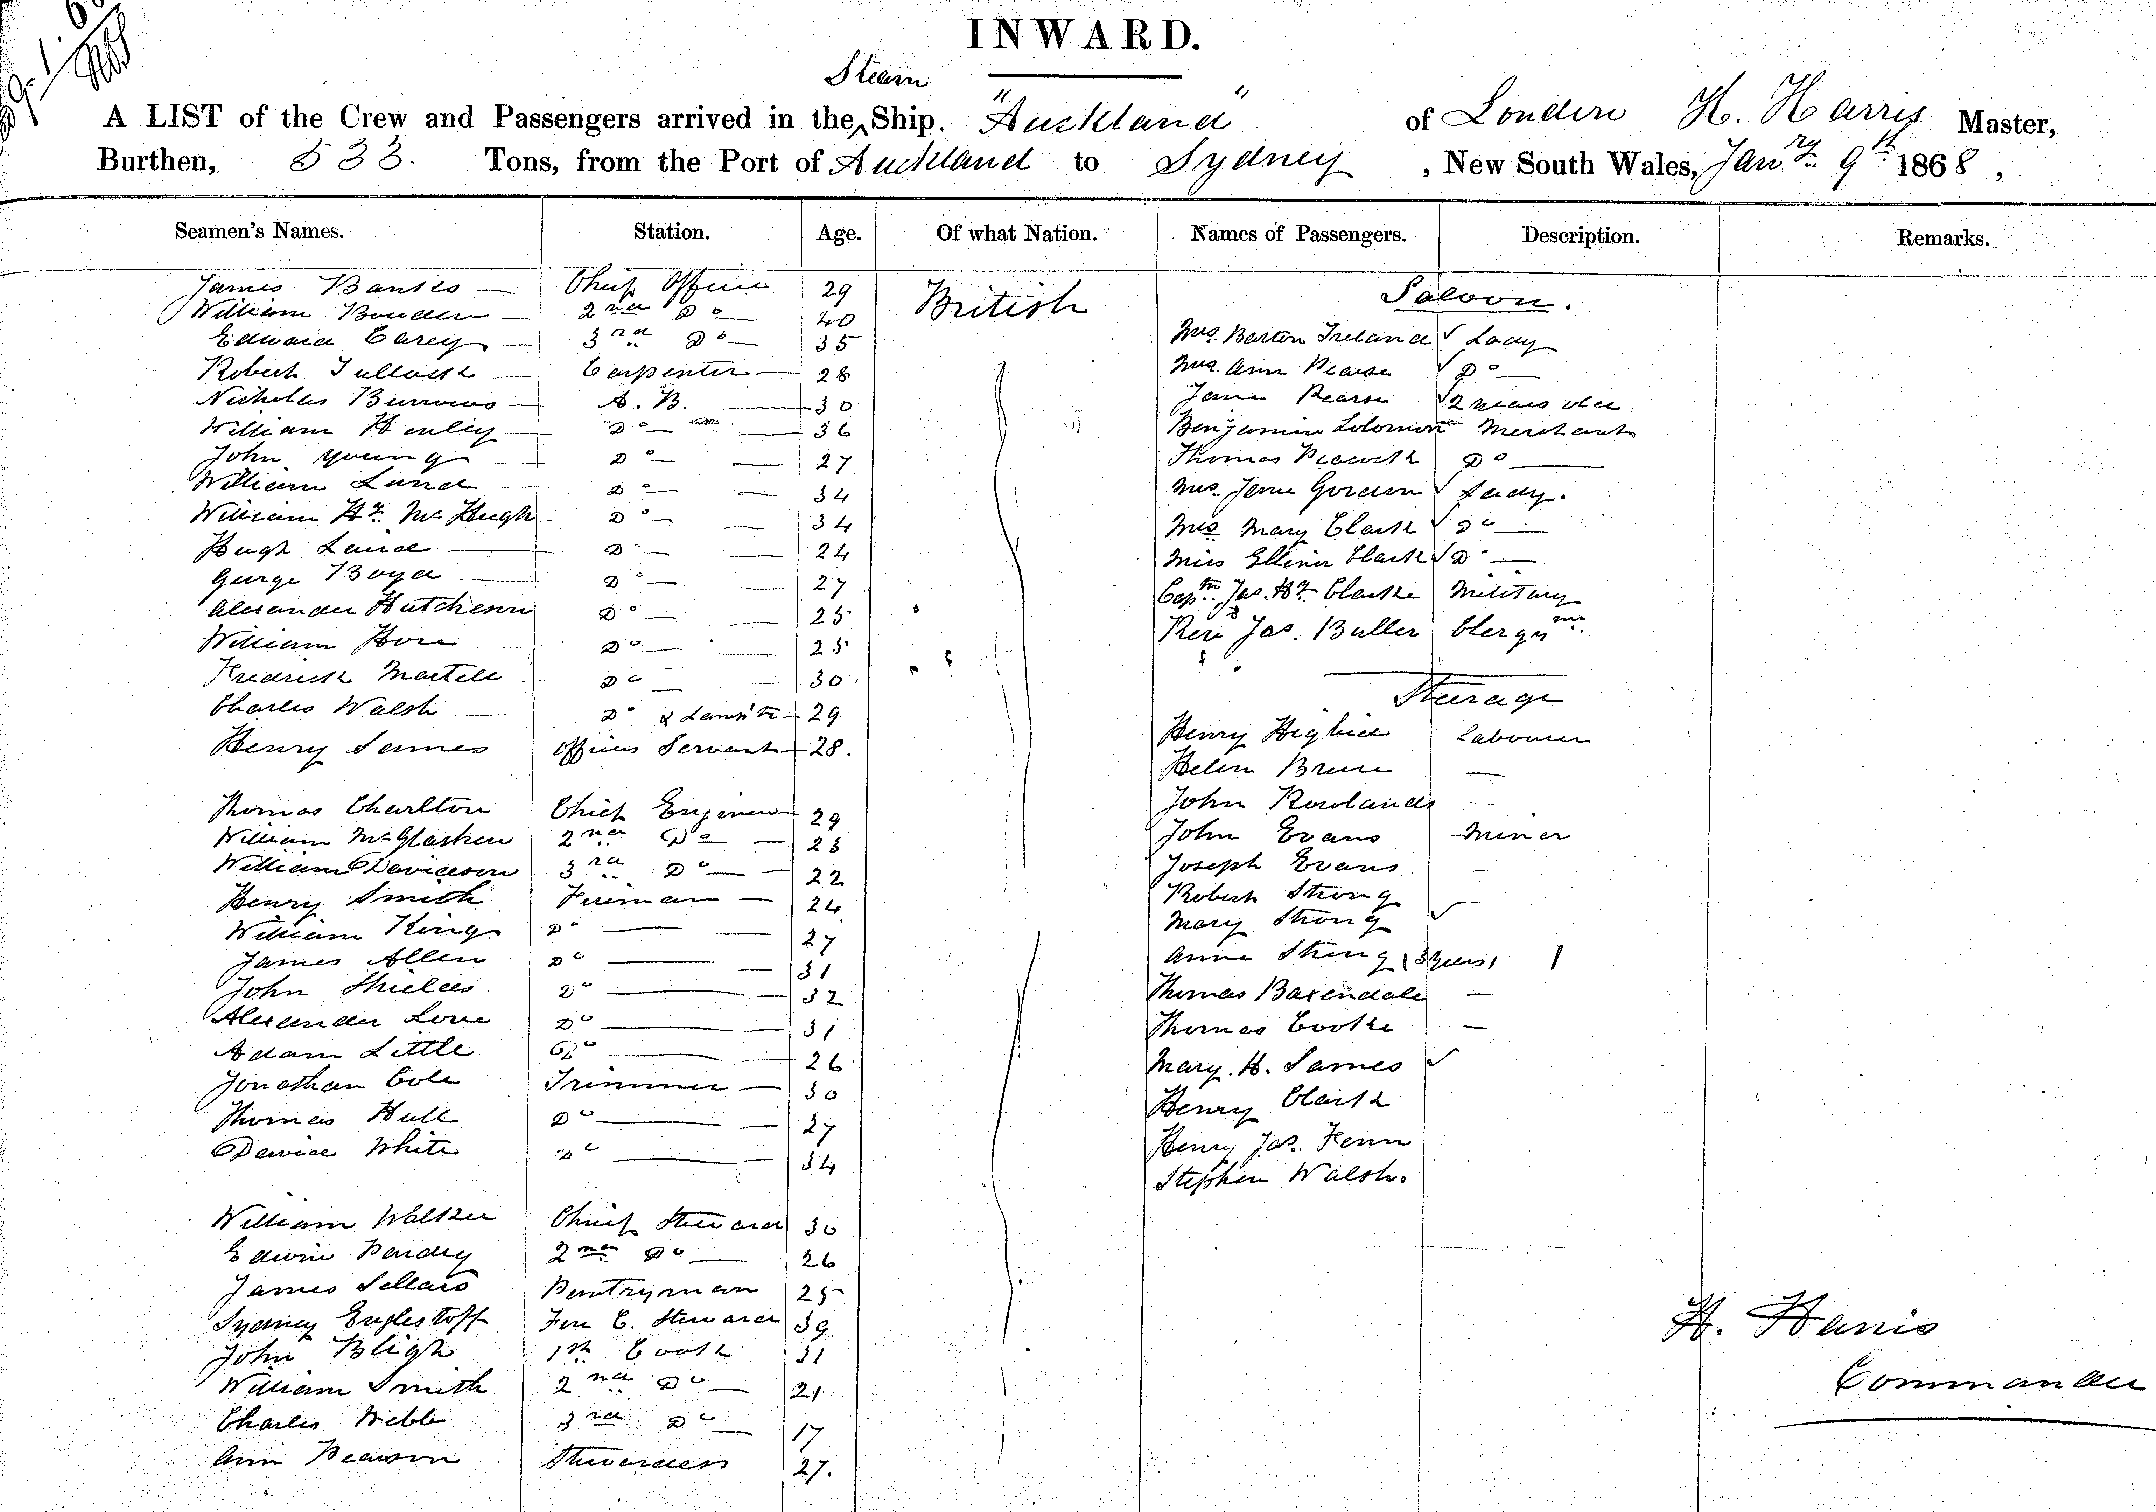 INWARD.
Steam
A LIST of the Crew and Passengers arrived in the Ship. "Auckland" of London H. Harris Master,
Burthen, 533. Tons, from the Port of Auckland to Sydney, New South Wales, Jany. 9th 1868,
Seamen's Names. Station. Age. Of what Nation. Names of Passengers. Description. Remarks.
James Banks — Chief Officer 29 British
William Bowden — 2nd Do — 40
Edward Carey — 3rd Do — 35
Robert Tulloch — Carpenter — 28
Nicholas Burrows — A. B. — 30
William Henley — Do — 36
John Young — Do — 27
William Lund Do — 34
William Hy. McHugh Do — 34
Hugh Laird — Do — 24
George Boyd — Do — 27
Alexander Hutcheson Do — 25
William Hore Do — 25
Fredrick Martell Do — 30
Charles Walsh — Do & Lamp tr — 29
Henry James Officers Servant — 28.
Thomas Charlton Chief Engineer 29
William McGlashen 2nd Do — 23
William Davidson 3rd Do — 22
Henry Smith Fireman — 24
William King Do — 27
James Allen Do — 31
John Shields Do — 32
Alexander Love Do — 31
Adam Little Do — 26
Jonathan Cole Trimmer — 30
Thomas Hull Do — 27
David White Do — 34
William Walker Chief Steward 30
Edwin Pardey 2nd Do — 26
James Sellars Pantryman 25
Sydney Englestoff Fore C. Steward 39
John Bligh 1st Cook 31
William Smith 2nd Do — 21
Charles Webb 3rd Do — 17
Ann Pearson Stewardess 27.
Saloon.
Mrs. Barton Ireland ✓ Lady
Mrs. Ann Pearse ✓ Do —
Jane Pearse ✓ 2 years old
Benjamin Solomon Merchant
Thomas Do —
Mrs. Jane Gordon ✓ Lady.
Mrs Mary Clark ✓ Do —
Miss Ellinor Clark ✓ Do —
Captn. Jas. Hy. Clarke Military
Rev Jas. Buller Clergyman.
Steerage
Henry Highie Labourer
Helen Bruce —
John Rowlands
John Evans Miner
Joseph Evans —
Robert Strong
Mary Strong ✓
Anne Strong (3 years) 1
Thomas Baxendale —
Thomas Cooke —
Mary. H. James ✓
Henry Clark
Henry Jas. Fenn
Stephen Walsh.
H. Harris
Commander